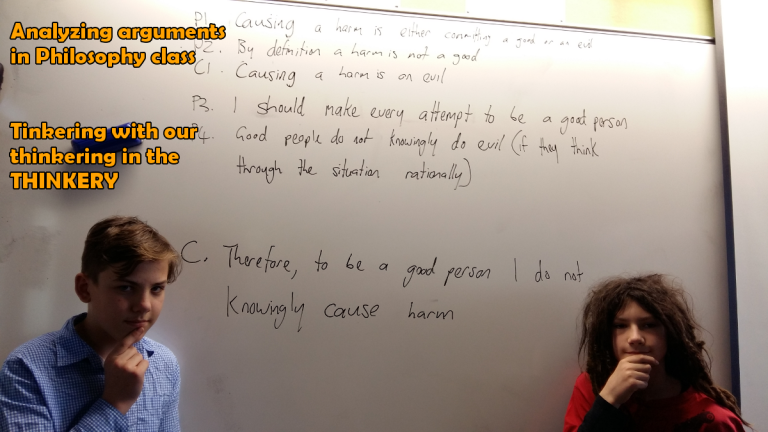 Analyzing arguments
in Philosophy class
Tinkering with our
thinkering in the
THINKERY
P1. Causing a harm is either committing a good or an evil
P2. By definition a harm is not a good
C1. Causing a harm is an evil
P3. I should make every attempt to be a good person
P4. Good people do not knowingly do evil (if they think
through the situation rationally)
C. Therefore, to be a good person I do not
knowingly cause harm